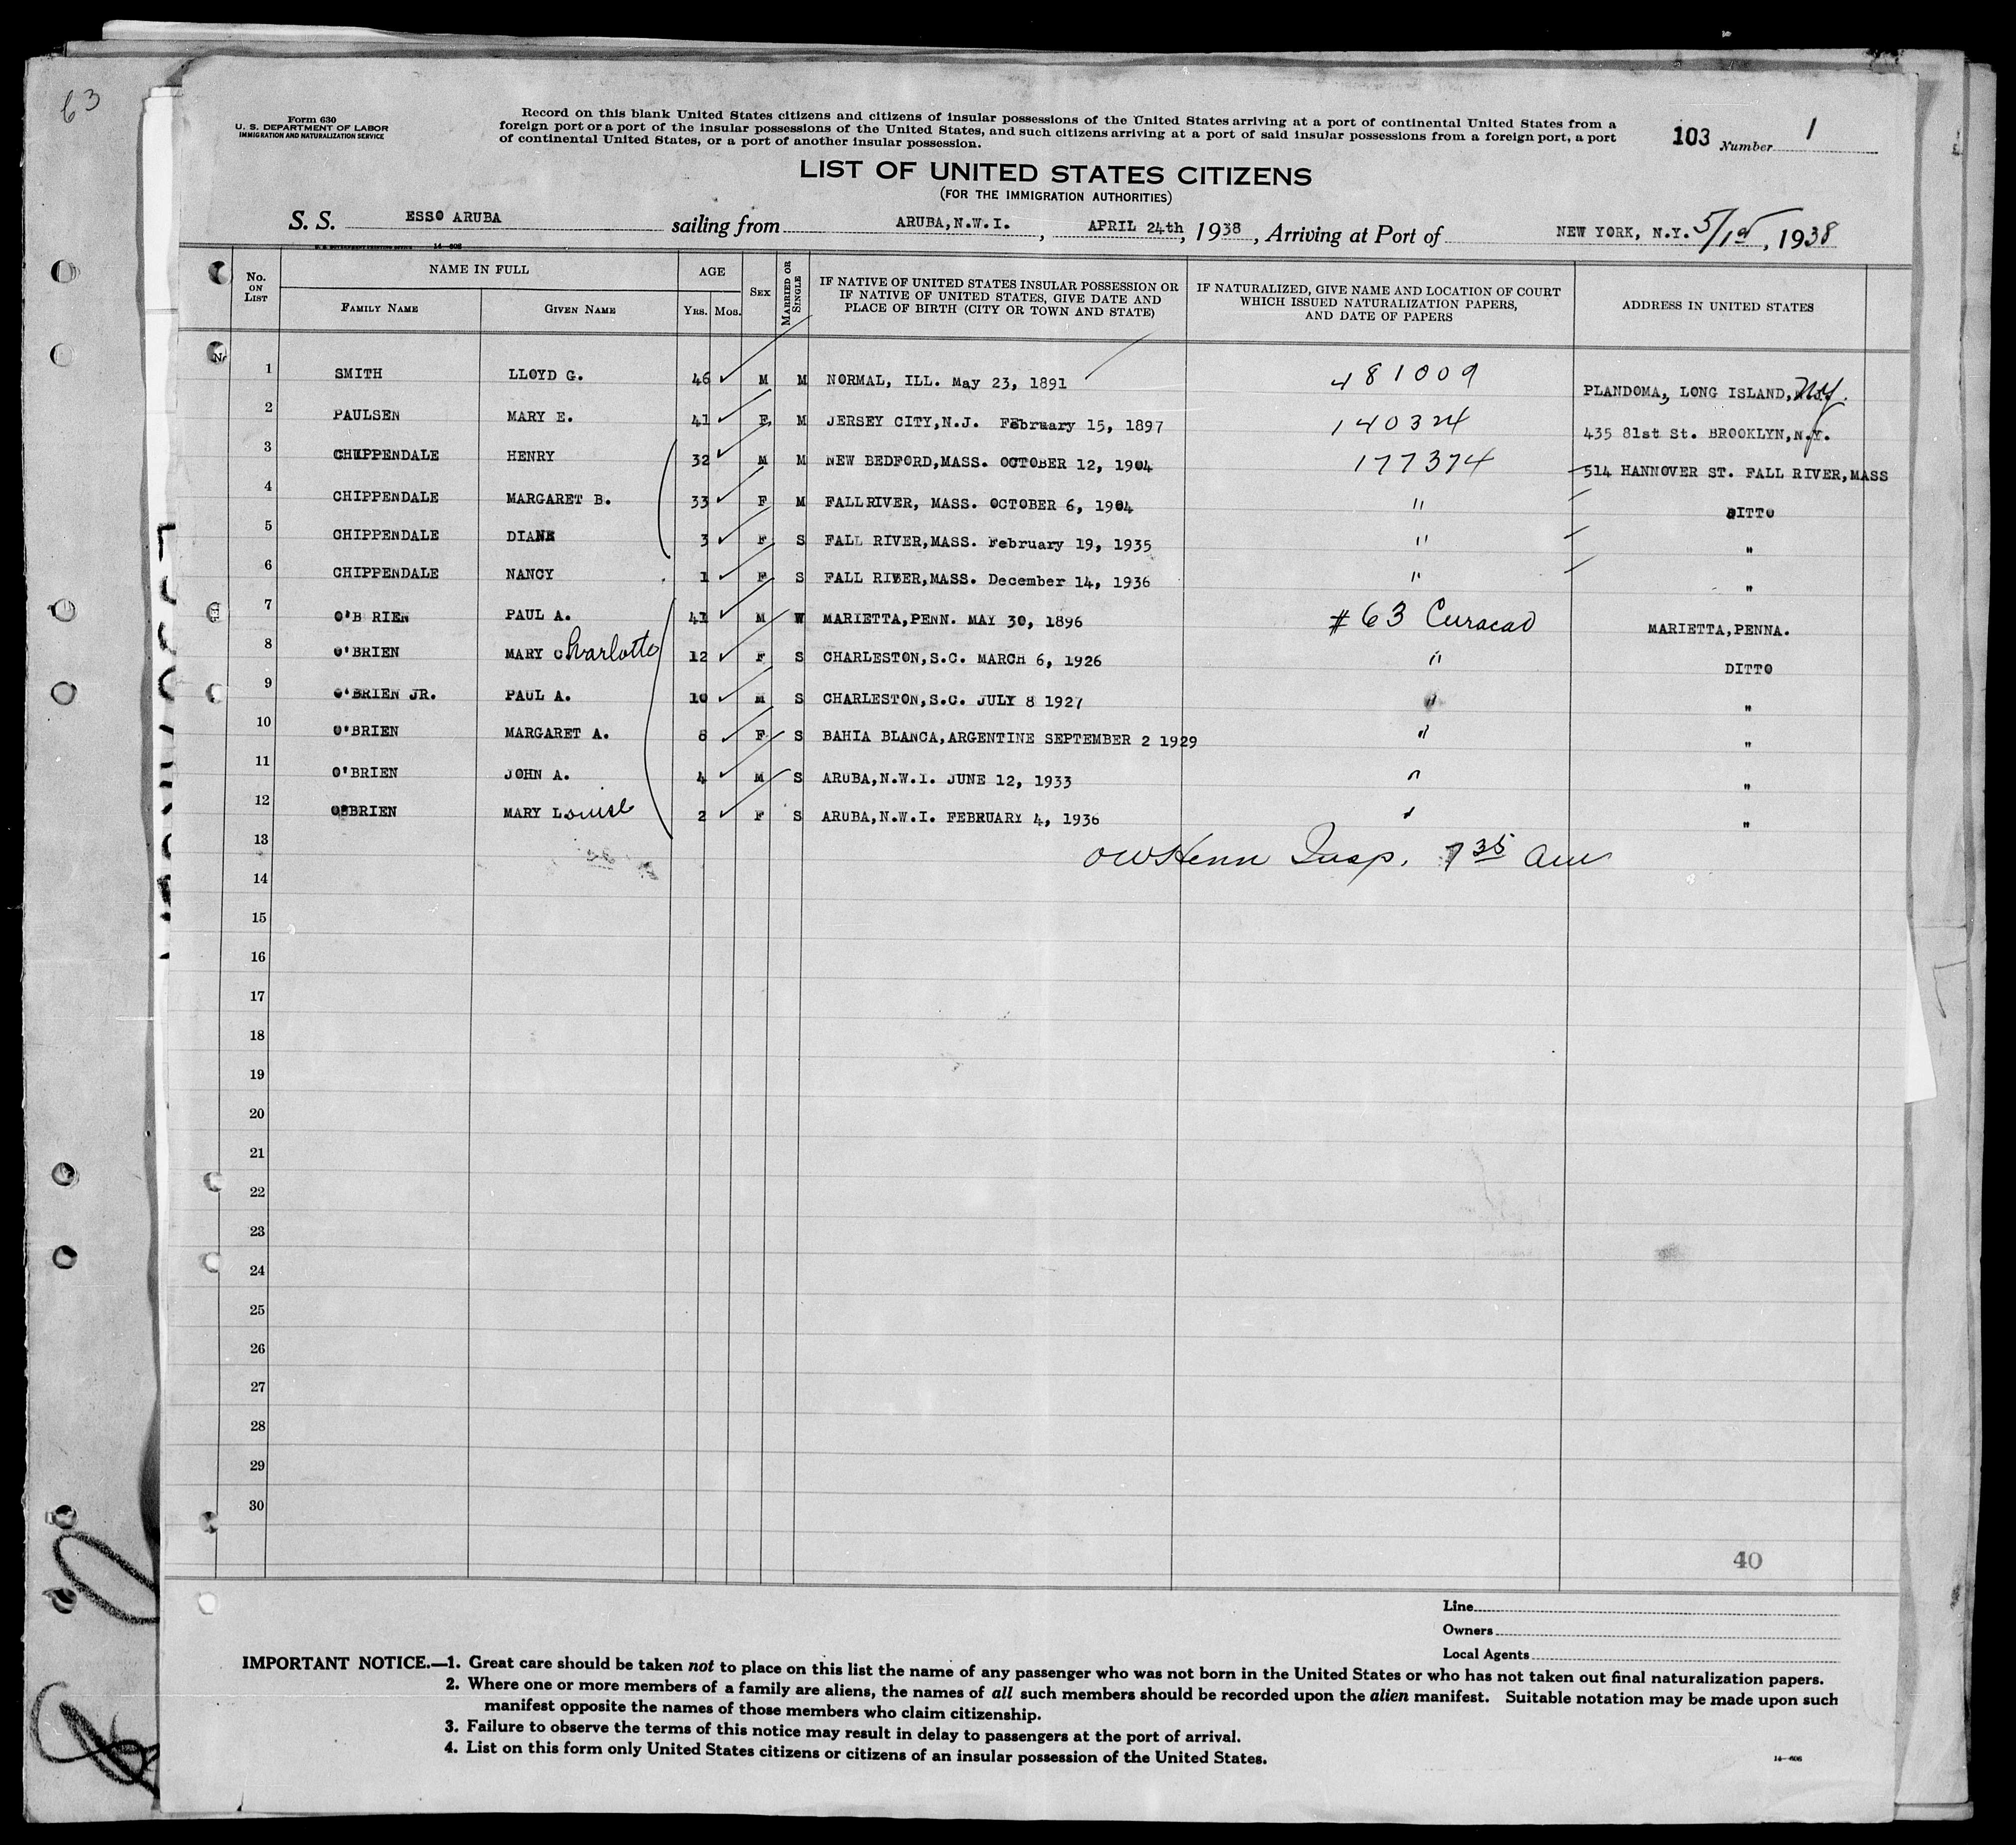 63
Form 630
U. S. DEPARTMENT OF LABOR
IMMIGRATION AND NATURALIZATION SERVICE
Record on this blank United States citizens and citizens of insular possessions of the United States arriving at a port of continental United States from a
foreign port or a port of the insular possessions of the United States, and such citizens arriving at a port of said insular possessions from a foreign port, a port
of continental United States, or a port of another insular possession.
103 Number 1
LIST OF UNITED STATES CITIZENS
(FOR THE IMMIGRATION AUTHORITIES)
S. S. ESSO ARUBA sailing from ARUBA,N.W.I. , APRIL 24th, 1938 , Arriving at Port of NEW YORK, N.Y. 5/1st , 1938
No. ON LIST NAME IN FULL AGE SEX MARRIED OR SINGLE IF NATIVE OF UNITED STATES INSULAR POSSESSION OR IF NATIVE OF UNITED STATES, GIVE DATE AND PLACE OF BIRTH (CITY OR TOWN AND STATE) IF NATURALIZED, GIVE NAME AND LOCATION OF COURT WHICH ISSUED NATURALIZATION PAPERS, AND DATE OF PAPERS ADDRESS IN UNITED STATES
FAMILY NAME GIVEN NAME YRS. MOS.
1 SMITH LLOYD G. 46 M M NORMAL, ILL. May 23, 1891 481009 PLANDOMA, LONG ISLAND, NY.
2 PAULSEN MARY E. 41 F M JERSEY CITY,N.J. February 15, 1897 140324 435 81st St. BROOKLYN,N.Y.
3 CHIPPENDALE HENRY 32 M M NEW BEDFORD,MASS. OCTOBER 12, 1904 177374 514 HANNOVER ST. FALL RIVER,MASS
4 CHIPPENDALE MARGARET B. 33 F M FALLRIVER, MASS. OCTOBER 6, 1904 " DITTO
5 CHIPPENDALE DIANE 3 F S FALL RIVER,MASS. February 19, 1935 " "
6 CHIPPENDALE NANCY 1 F S FALL RIVER,MASS. December 14, 1936 " "
7 O'BRIEN PAUL A. 41 M W MARIETTA,PENN. MAY 30, 1896 #63 Curacao MARIETTA,PENNA.
8 O'BRIEN MARY Charlotte 12 F S CHARLESTON,S.C. MARCH 6, 1926 " DITTO
9 O'BRIEN JR. PAUL A. 10 M S CHARLESTON,S.C. JULY 8 1927 " "
10 O'BRIEN MARGARET A. 8 F S BAHIA BLANCA,ARGENTINE SEPTEMBER 2 1929 " "
11 O'BRIEN JOHN A. 4 M S ARUBA,N.W.I. JUNE 12, 1933 " "
12 O'BRIEN MARY Louise 2 F S ARUBA,N.W.I. FEBRUARY 4, 1936 " "
13 Insp. 7 35 am
14
15
16
17
18
19
20
21
22
23
24
25
26
27
28
29
30
40
Line
Owners
Local Agents
IMPORTANT NOTICE.—1. Great care should be taken not to place on this list the name of any passenger who was not born in the United States or who has not taken out final naturalization papers.
2. Where one or more members of a family are aliens, the names of all such members should be recorded upon the alien manifest. Suitable notation may be made upon such
manifest opposite the names of those members who claim citizenship.
3. Failure to observe the terms of this notice may result in delay to passengers at the port of arrival.
4. List on this form only United States citizens or citizens of an insular possession of the United States.
14—606